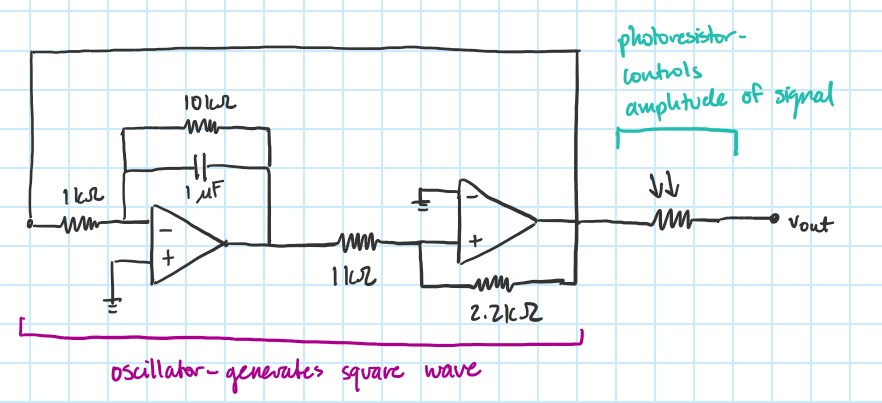 photoresistor-
controls
amplitude of signal
10kΩ
1 μF
1kΩ
-
+
1kΩ
-
+
2.2kΩ
Vout
oscillator-generates square wave